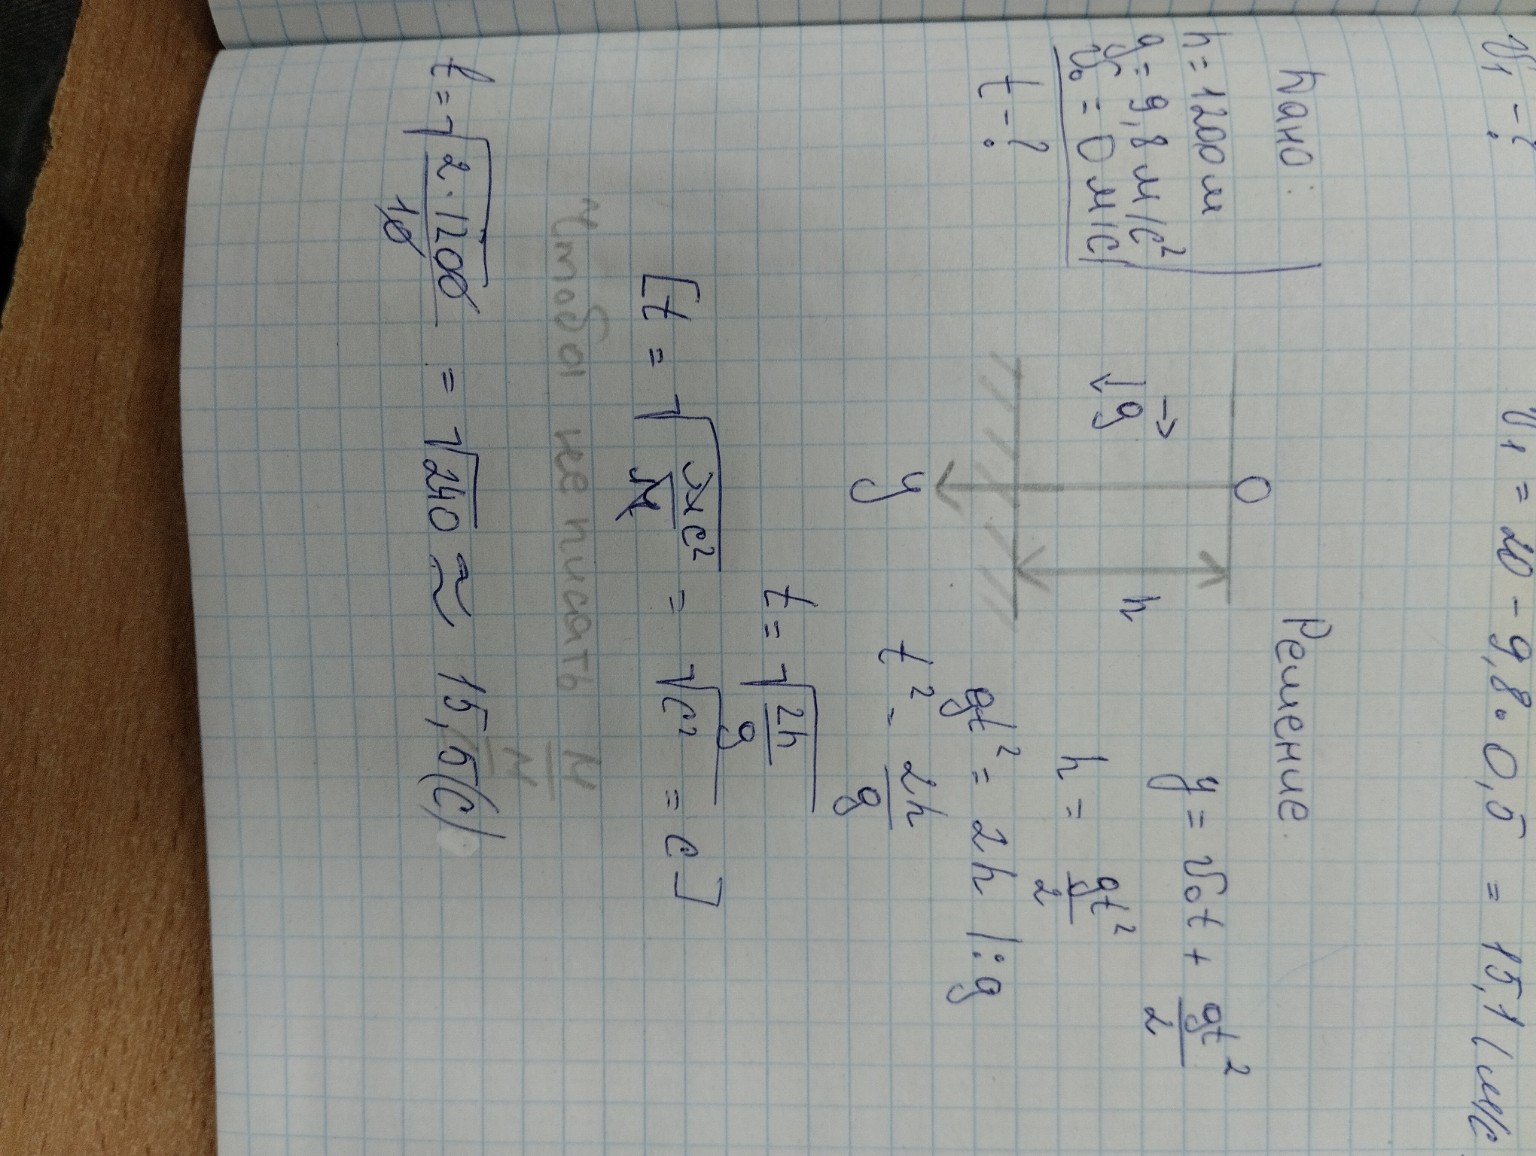 V₁ - ?
V₁ = 20 - 9,8 · 0,5 = 15,1 (м/с
Дано:
Решение.
h = 1200 м
g = 9,8 м/с²
V₀ = 0 м/с
t - ?
0
g
h
y
y = V₀t + gt²/2
h = gt²/2
gt² = 2h |:g
t² = 2h/g
t = √(2h/g)
[t = √(м с²/м) = √с² = с]
чтобы не писать м/м
t = √(2·1200/10) = √240 ≈ 15,5 (с)